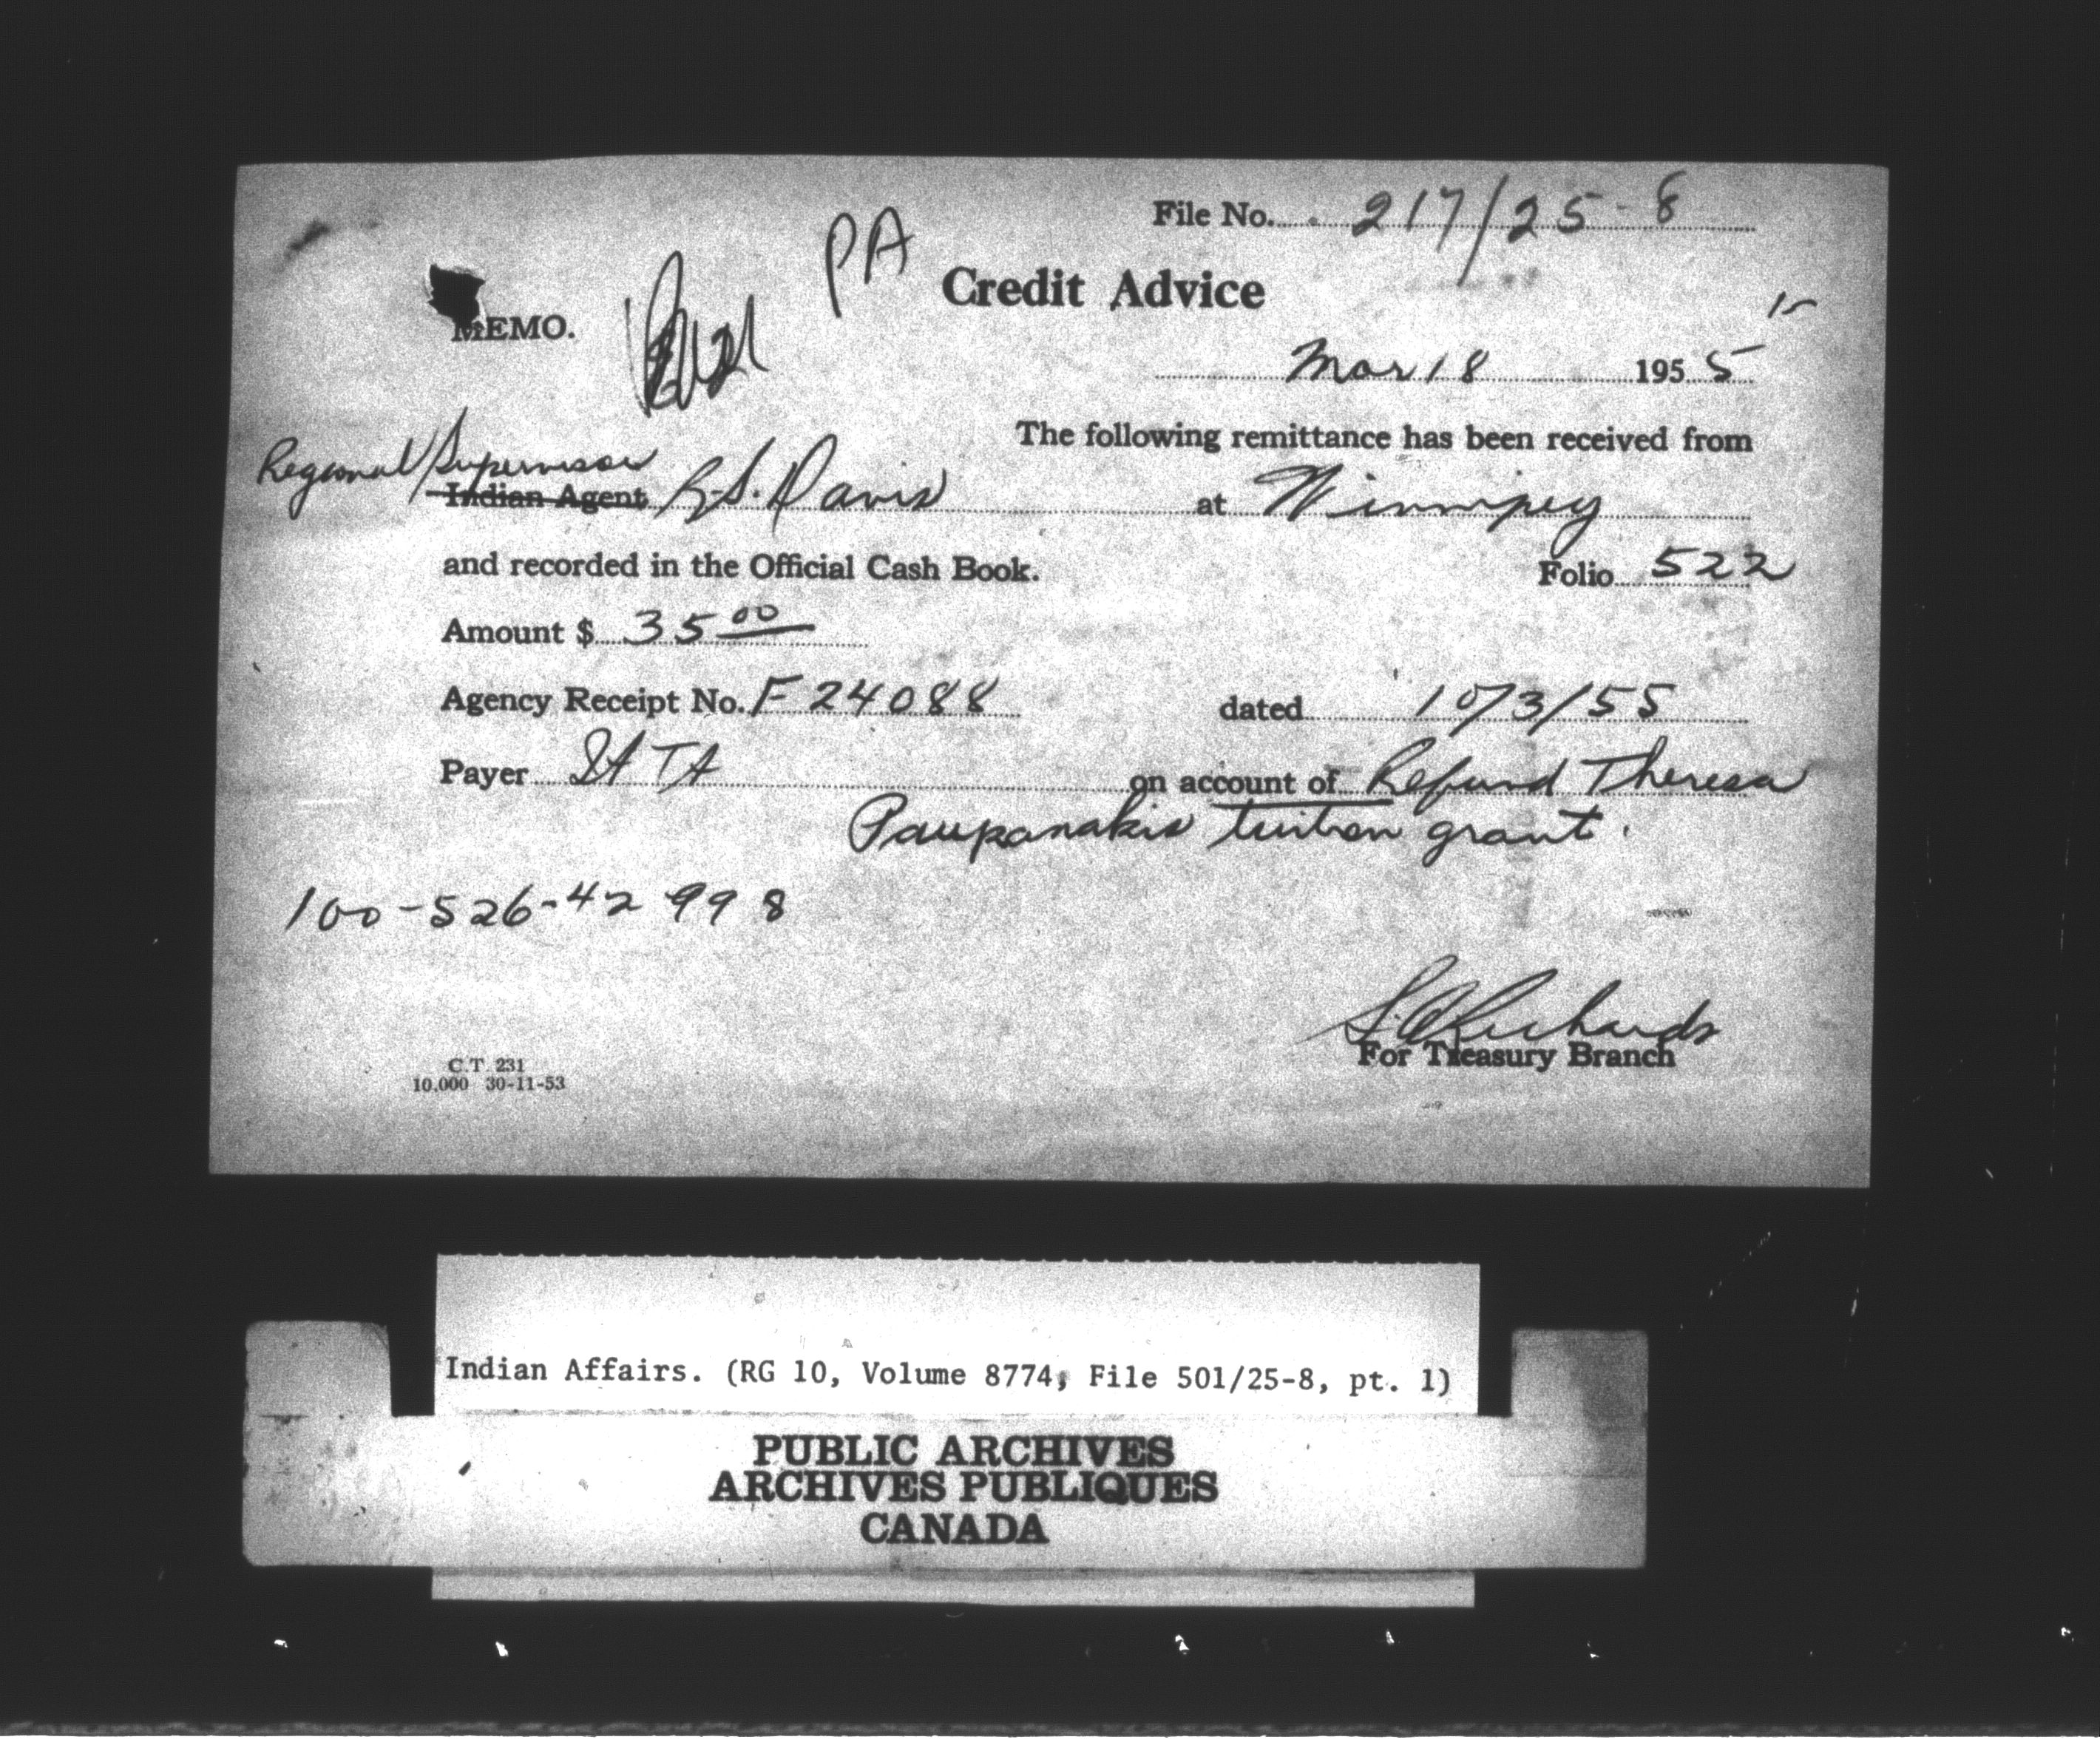 File No. 217/25-8
PA
Credit Advice
MEMO.
15
Mar 18 1955
The following remittance has been received from
Regional Supervisor
Indian Agent R.S. Davis at Winnipeg
and recorded in the Official Cash Book.
Folio 522
Amount $ 35 00
Agency Receipt No. F 24088 dated 10/3/55
Payer on account of Refund Theresa
Paupanakis tuition grant.
100-526-42 998
For Treasury Branch
C.T. 231
10,000 30-11-53
Indian Affairs. (RG 10, Volume 8774, File 501/25-8, pt. 1)
PUBLIC ARCHIVES
ARCHIVES PUBLIQUES
CANADA